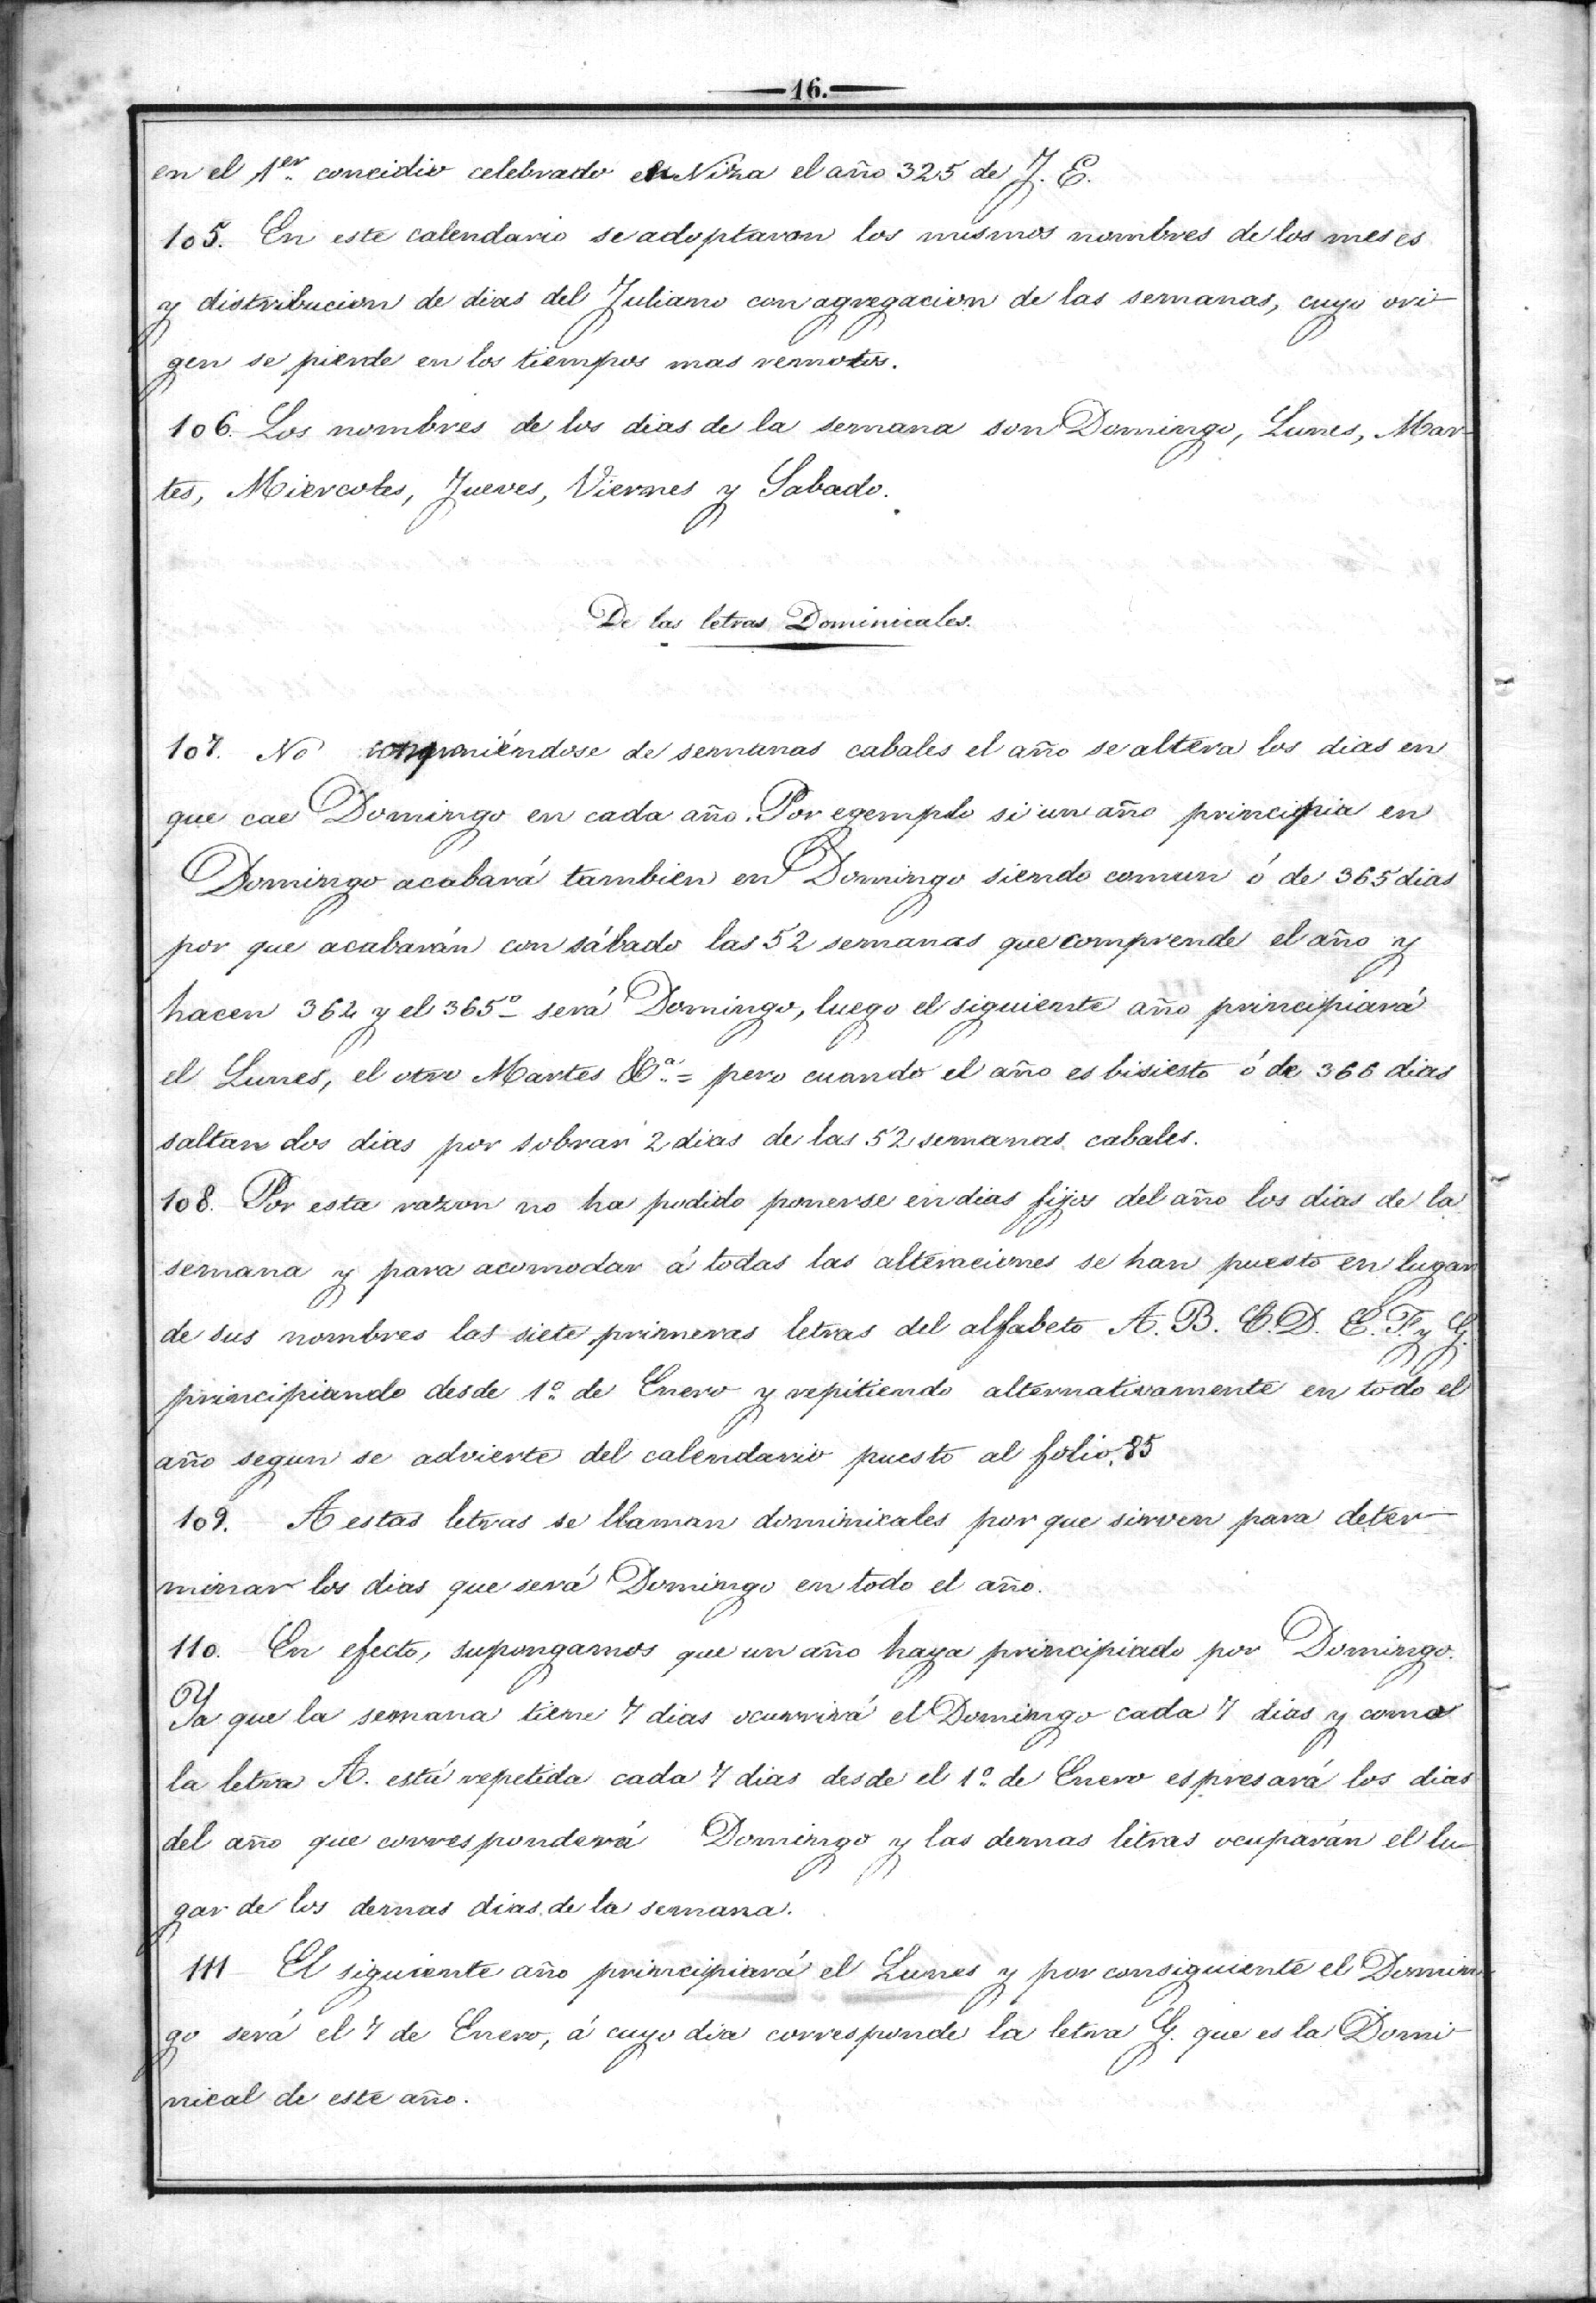 16.
en el 1er. concidio celebrado en Niza el año 325 de J. C.
105. En este calendario se adoptaron los mismos nombres de los meses
y distribucion de dias del Juliano con agregacion de las semanas, cuyo ori-
gen se pierde en los tiempos mas remotos.
106. Los nombres de los dias de la semana son Domingo, Lunes, Mar-
tes, Miercoles, Jueves, Viernes y Sabado.
De las letras Dominicales.
107. No componiéndose de semanas cabales el año se altera los dias en
que cae Domingo en cada año. Por egemplo si un año principia en
Domingo acabará tambien en Domingo siendo comun ó de 365 dias
por que acabarán con sábado las 52 semanas que comprende el año y
hacen 364 y el 365º será Domingo, luego el siguiente año principiará
el Lunes, el otro Martes &a. = pero cuando el año es bisiesto ó de 366 dias
saltan dos dias por sobrar 2 dias de las 52 semanas cabales.
108. Por esta razon no ha podido ponerse en dias fijos del año los dias de la
semana y para acomodar á todas las alteraciones se han puesto en lugar
de sus nombres las siete primeras letras del alfabeto A. B. C. D. E. F. y G.
principiando desde 1º de Enero y repitiendo alternativamente en todo el
año segun se advierte del calendario puesto al folio 85
109. A estas letras se llaman dominicales por que sirven para deter-
minar los dias que será Domingo en todo el año.
110. En efecto, supongamos que un año haya principiado por Domingo.
Ya que la semana tiene 7 dias ocurrirá el Domingo cada 7 dias y como
la letra A. está repetida cada 7 dias desde el 1º de Enero espresará los dias
del año que corresponderá Domingo y las demas letras ocuparán el lu-
gar de los demas dias de la semana.
111 El siguiente año principiará el Lunes y por consiguiente el Domin-
go será el 7 de Enero, á cuyo dia corresponde la letra G. que es la Domi-
nical de este año.